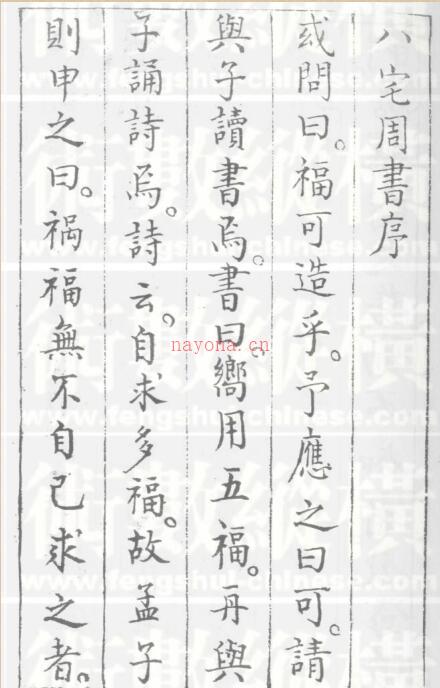 八宅周書序
或問曰。福可造乎。予應之曰可。請
與子讀書焉。書曰。嚮用五福。再與
子誦詩焉。詩云。自求多福。故孟子
則申之曰。禍福無不自己求之者。
nayona.cn
www.fengshui-chinese.com